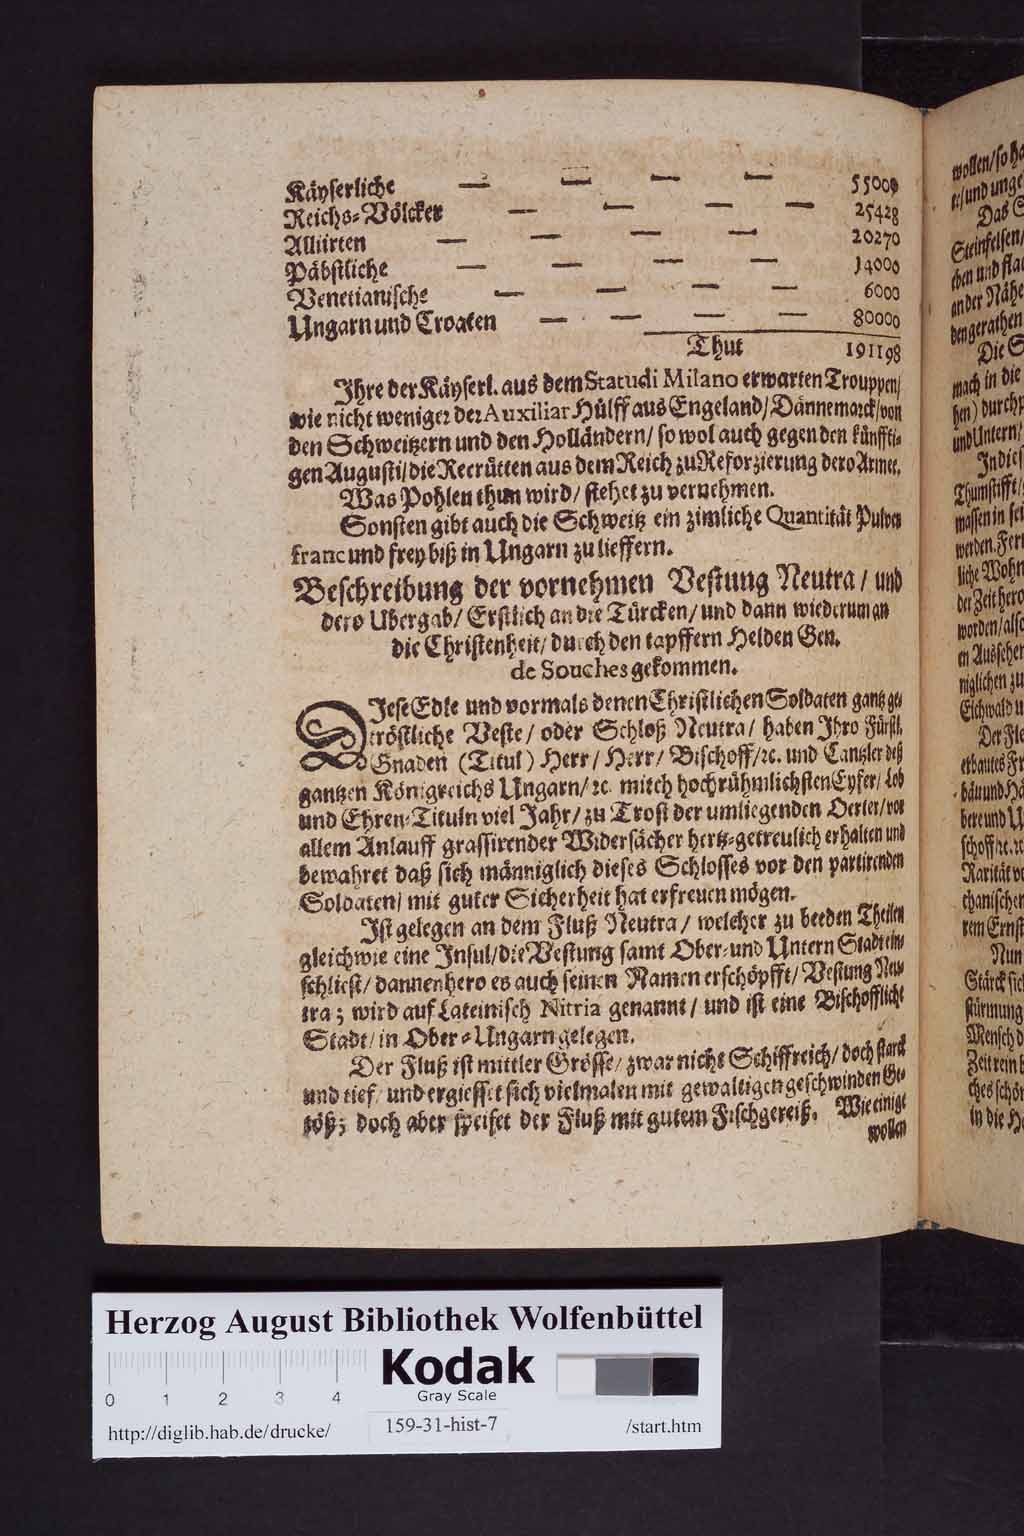 Käyserliche — — — — 55000
Reichs-Völcker — — — — 25428
Alliirten — — — — 20270
Päbstliche — — — — 14000
Venetianische — — — — 6000
Ungarn und Croaten — — — — 80000
Thut 191198
Ihre der Käyserl. aus dem Statu di Milano erwarten Trouppen/
wie nicht weniger der Auxiliar Hülff aus Engeland/ Dännemarck/ von
den Schweitzern und den Holländern/ so wol auch gegen den künffti-
gen Augusti/ die Recrütten aus dem Reich zu Reforzierung dero Armee.
Was Pohlen thun wird/ stehet zu vernehmen.
Sonsten gibt auch die Schweitz ein zimliche Quantität Pulver
franc und frey biß in Ungarn zu lieffern.
Beschreibung der vornehmen Vestung Neutra/ und
dero Ubergab/ Erstlich an die Türcken/ und dann wiederum an
die Christenheit/ durch den tapffern Helden Gen.
de Souches gekommen.
DIese Edle und vormals denen Christlichen Soldaten gantz ge-
tröstliche Veste/ oder Schloß Neutra/ haben Ihro Fürstl.
Gnaden (Titul) Herr/ Herr/ Bischoff/ ꝛc. und Cantzler deß
gantzen Königreichs Ungarn/ ꝛc. mitch hochrühmlichsten Eyfer/ Lob
und Ehren-Tituln viel Jahr/ zu Trost der umliegenden Oerter/ vor
allem Anlauff grassirender Widersächer hertz-getreulich erhalten und
bewahret daß sich männiglich dieses Schlosses vor den partirenden
Soldaten/ mit guter Sicherheit hat erfreuen mögen.
Ist gelegen an dem Fluß Neutra/ welcher zu beeden Theilen
gleichwie eine Insul/ die Vestung samt Ober- und Untern Stadt ein-
schliest/ dannenhero es auch seinen Namen erschöpfft/ Vestung Neu-
tra; wird auf Lateinisch Nitria genannt/ und ist eine Bischofflicht
Stadt/ in Ober-Ungarn gelegen.
Der Fluß ist mittler Grösse/ zwar nicht Schiffreich/ doch starck
und tief/ und ergiesset sich vielmalen mit gewaltigen geschwinden Ge-
töß; doch aber speiset der Fluß mit gutem Fischgereiß. Wie einige
wollen
wollen/ so
Das
Steinfelsen/
eben und
an der Nähe
den gerathen
Die
mach in die
hen) durch
und Untern/
In
Thumstifft/
massen in
werden.
liche Wohn
der Zeit
worden/
en
niglichen zu
Eichwald
Der
erbautes
bäu und
bere und
schoff/ ꝛc.
Rarität
thanischen
rem Ernst
Nun
Stärck sich
stürmung
Mensch
Zeit rein
ches
in die
Herzog August Bibliothek Wolfenbüttel
Kodak
Gray Scale
0 1 2 3 4
http://diglib.hab.de/drucke/ 159-31-hist-7 /start.htm